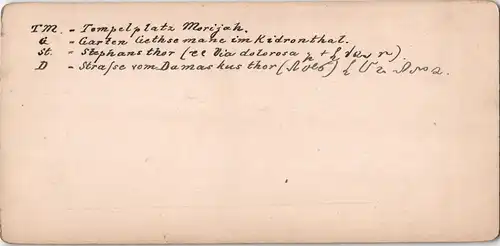 TM. - Tempelplatz Morijah.
G - Garten Gethsemane im Kidronthal.
St. - Stephansthor ( Via dolorosa
D - Straße vom Damaskusthor (